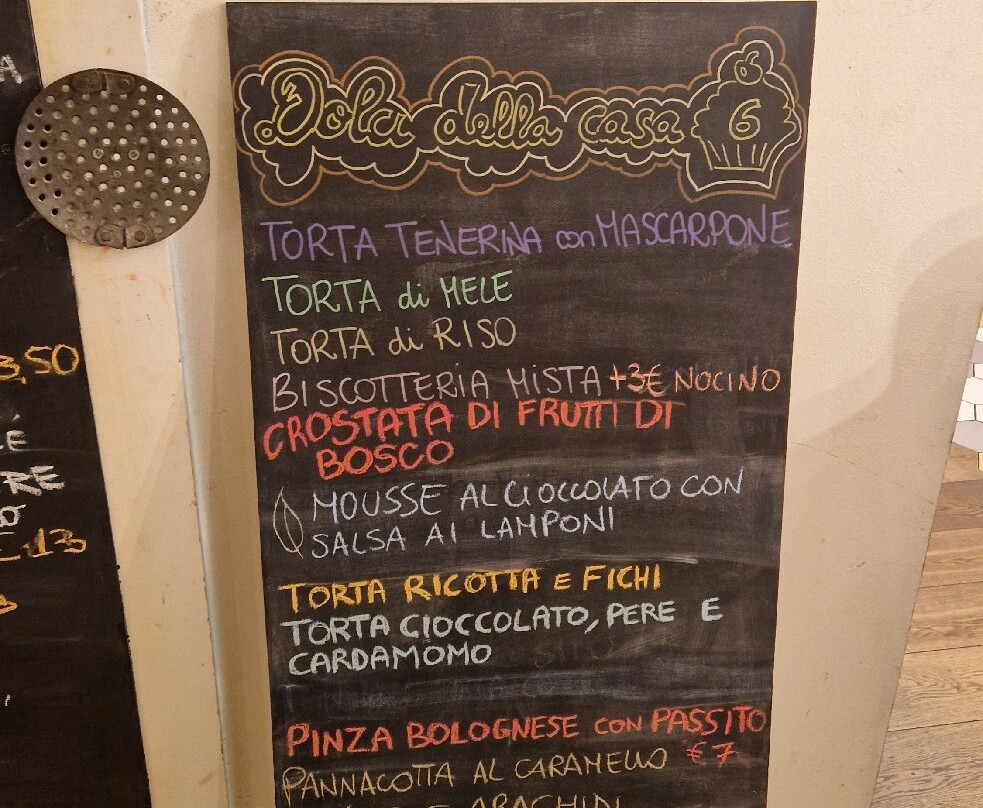 Dolci della casa 6
6
TORTA TENERINA con MASCARPONE
TORTA di MELE
TORTA di RISO
BISCOTTERIA MISTA +3€ NOCINO
CROSTATA DI FRUTTI DI
BOSCO
MOUSSE AL CIOCCOLATO CON
SALSA AI LAMPONI
TORTA RICOTTA E FICHI
TORTA CIOCCOLATO, PERE E
CARDAMOMO
PINZA BOLOGNESE con PASSITO
€7
PANNACOTTA AL CARAMELLO
E ARACHIDI
3,50
RE
€13